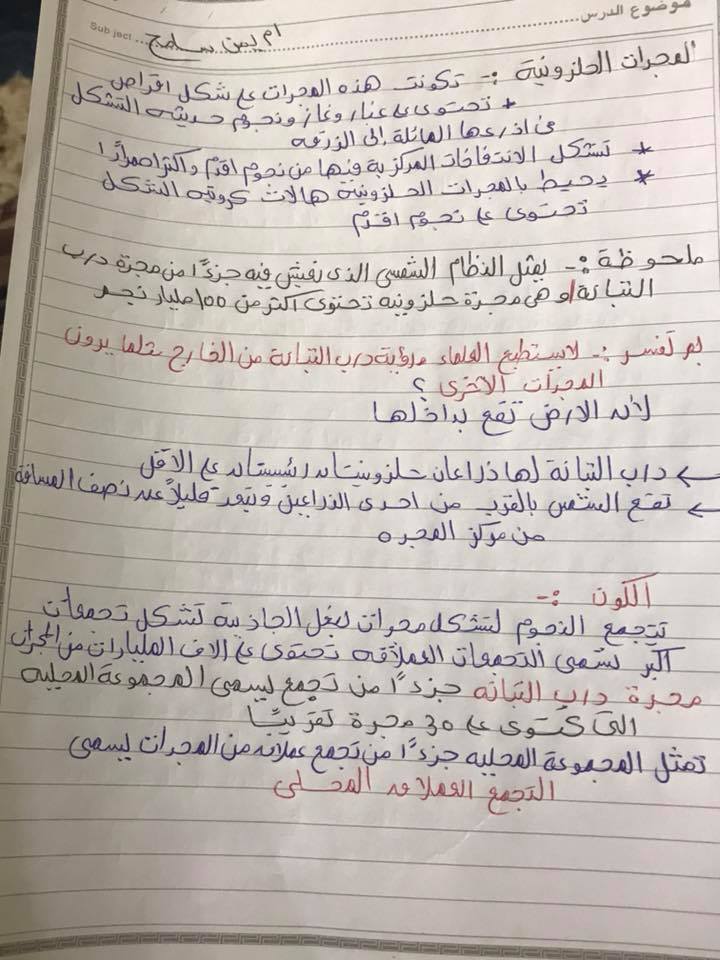 موضوع الدرس
Subject
المجرات الحلزونية :- تكونت هذه المجرات على شكل اقراص
* تحتوى على غبار وغاز ونجوم حديثه التشكل
فى اذرعها المائلة إلى الزرقه
* تشكل الانتفاخات المركزية فيها من نجوم اقدم واكثر احمرارًا
* يحيط بالمجرات الحلزونية هالات كرويه الشكل
تحتوى على نجوم اقدم
ملحوظة :- يمثل النظام الشمسى الذى نعيش فيه جزءًا من مجرة درب
التبانة او هى مجرة حلزونيه تحتوى اكثر من ١٠٠ مليار نجم
بم تفسر :- لا يستطيع العلماء رؤية درب التبانة من الخارج مثلما يرون
المجرات الاخرى ؟
لأنه الارض تقع بداخلها
← درب التبانة لها ذراعان حلزونيتان رئيستان على الاقل
← تقع الشمس بالقرب من احدى الذراعين وتبعد قليلاً عن نصف المسافة
من مركز المجره
الكون :-
تتجمع النجوم لتشكل مجرات بفعل الجاذبية تشكل تجمعات
اكبر تسمى التجمعات العملاقه تحتوى على الاف المليارات من المجرات
مجرة درب التبانه جزءًا من تجمع يسمى المجموعة المحليه
التى تحتوى على 30 مجرة تقريبًا
تمثل المجموعة المحليه جزءًا من تجمع عملاق من المجرات يسمى
التجمع العملاق المحلى